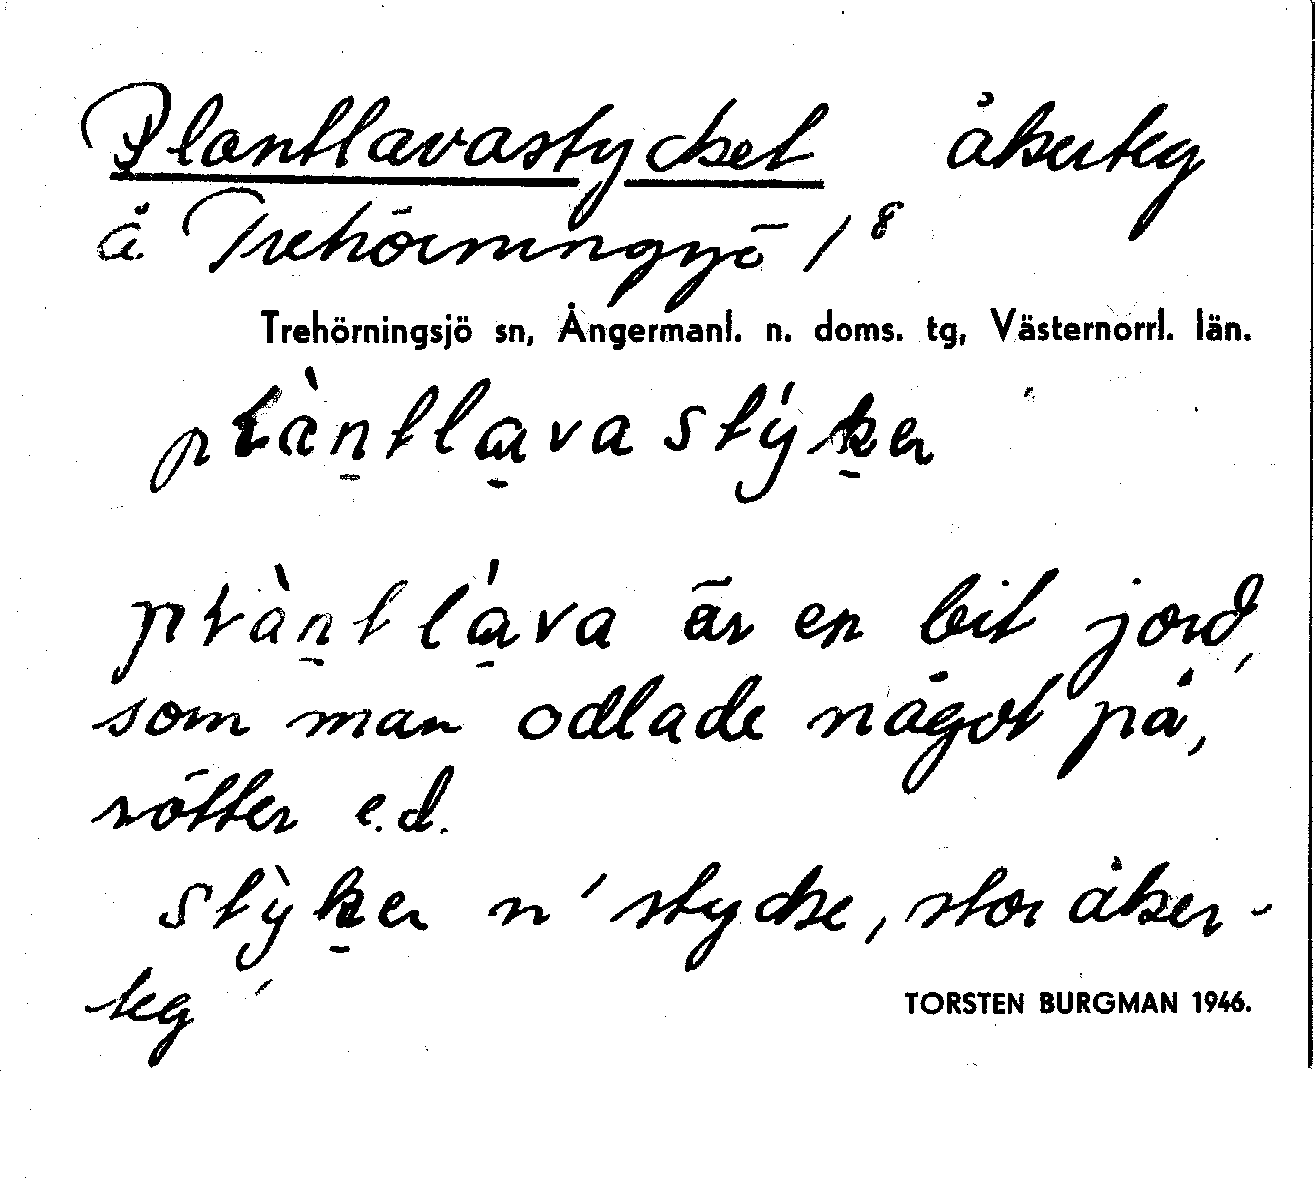 Plantlavastycket åkerteg
å Trehörningsjö 1⁸
Trehörningsjö sn, Ångermanl. n. doms. tg, Västernorrl. län.
plàntlavastýker
plàntláva är en bit jord,
som man odlade något på,
rötter e.d.
stỳker n ' stycke, stor åker-
teg '
TORSTEN BURGMAN 1946.